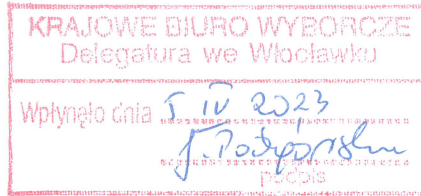 KRAJOWE BIURO WYBORCZE
Delegatura we Włocławku
Wpłynęło dnia 5 IV 2023
podpis